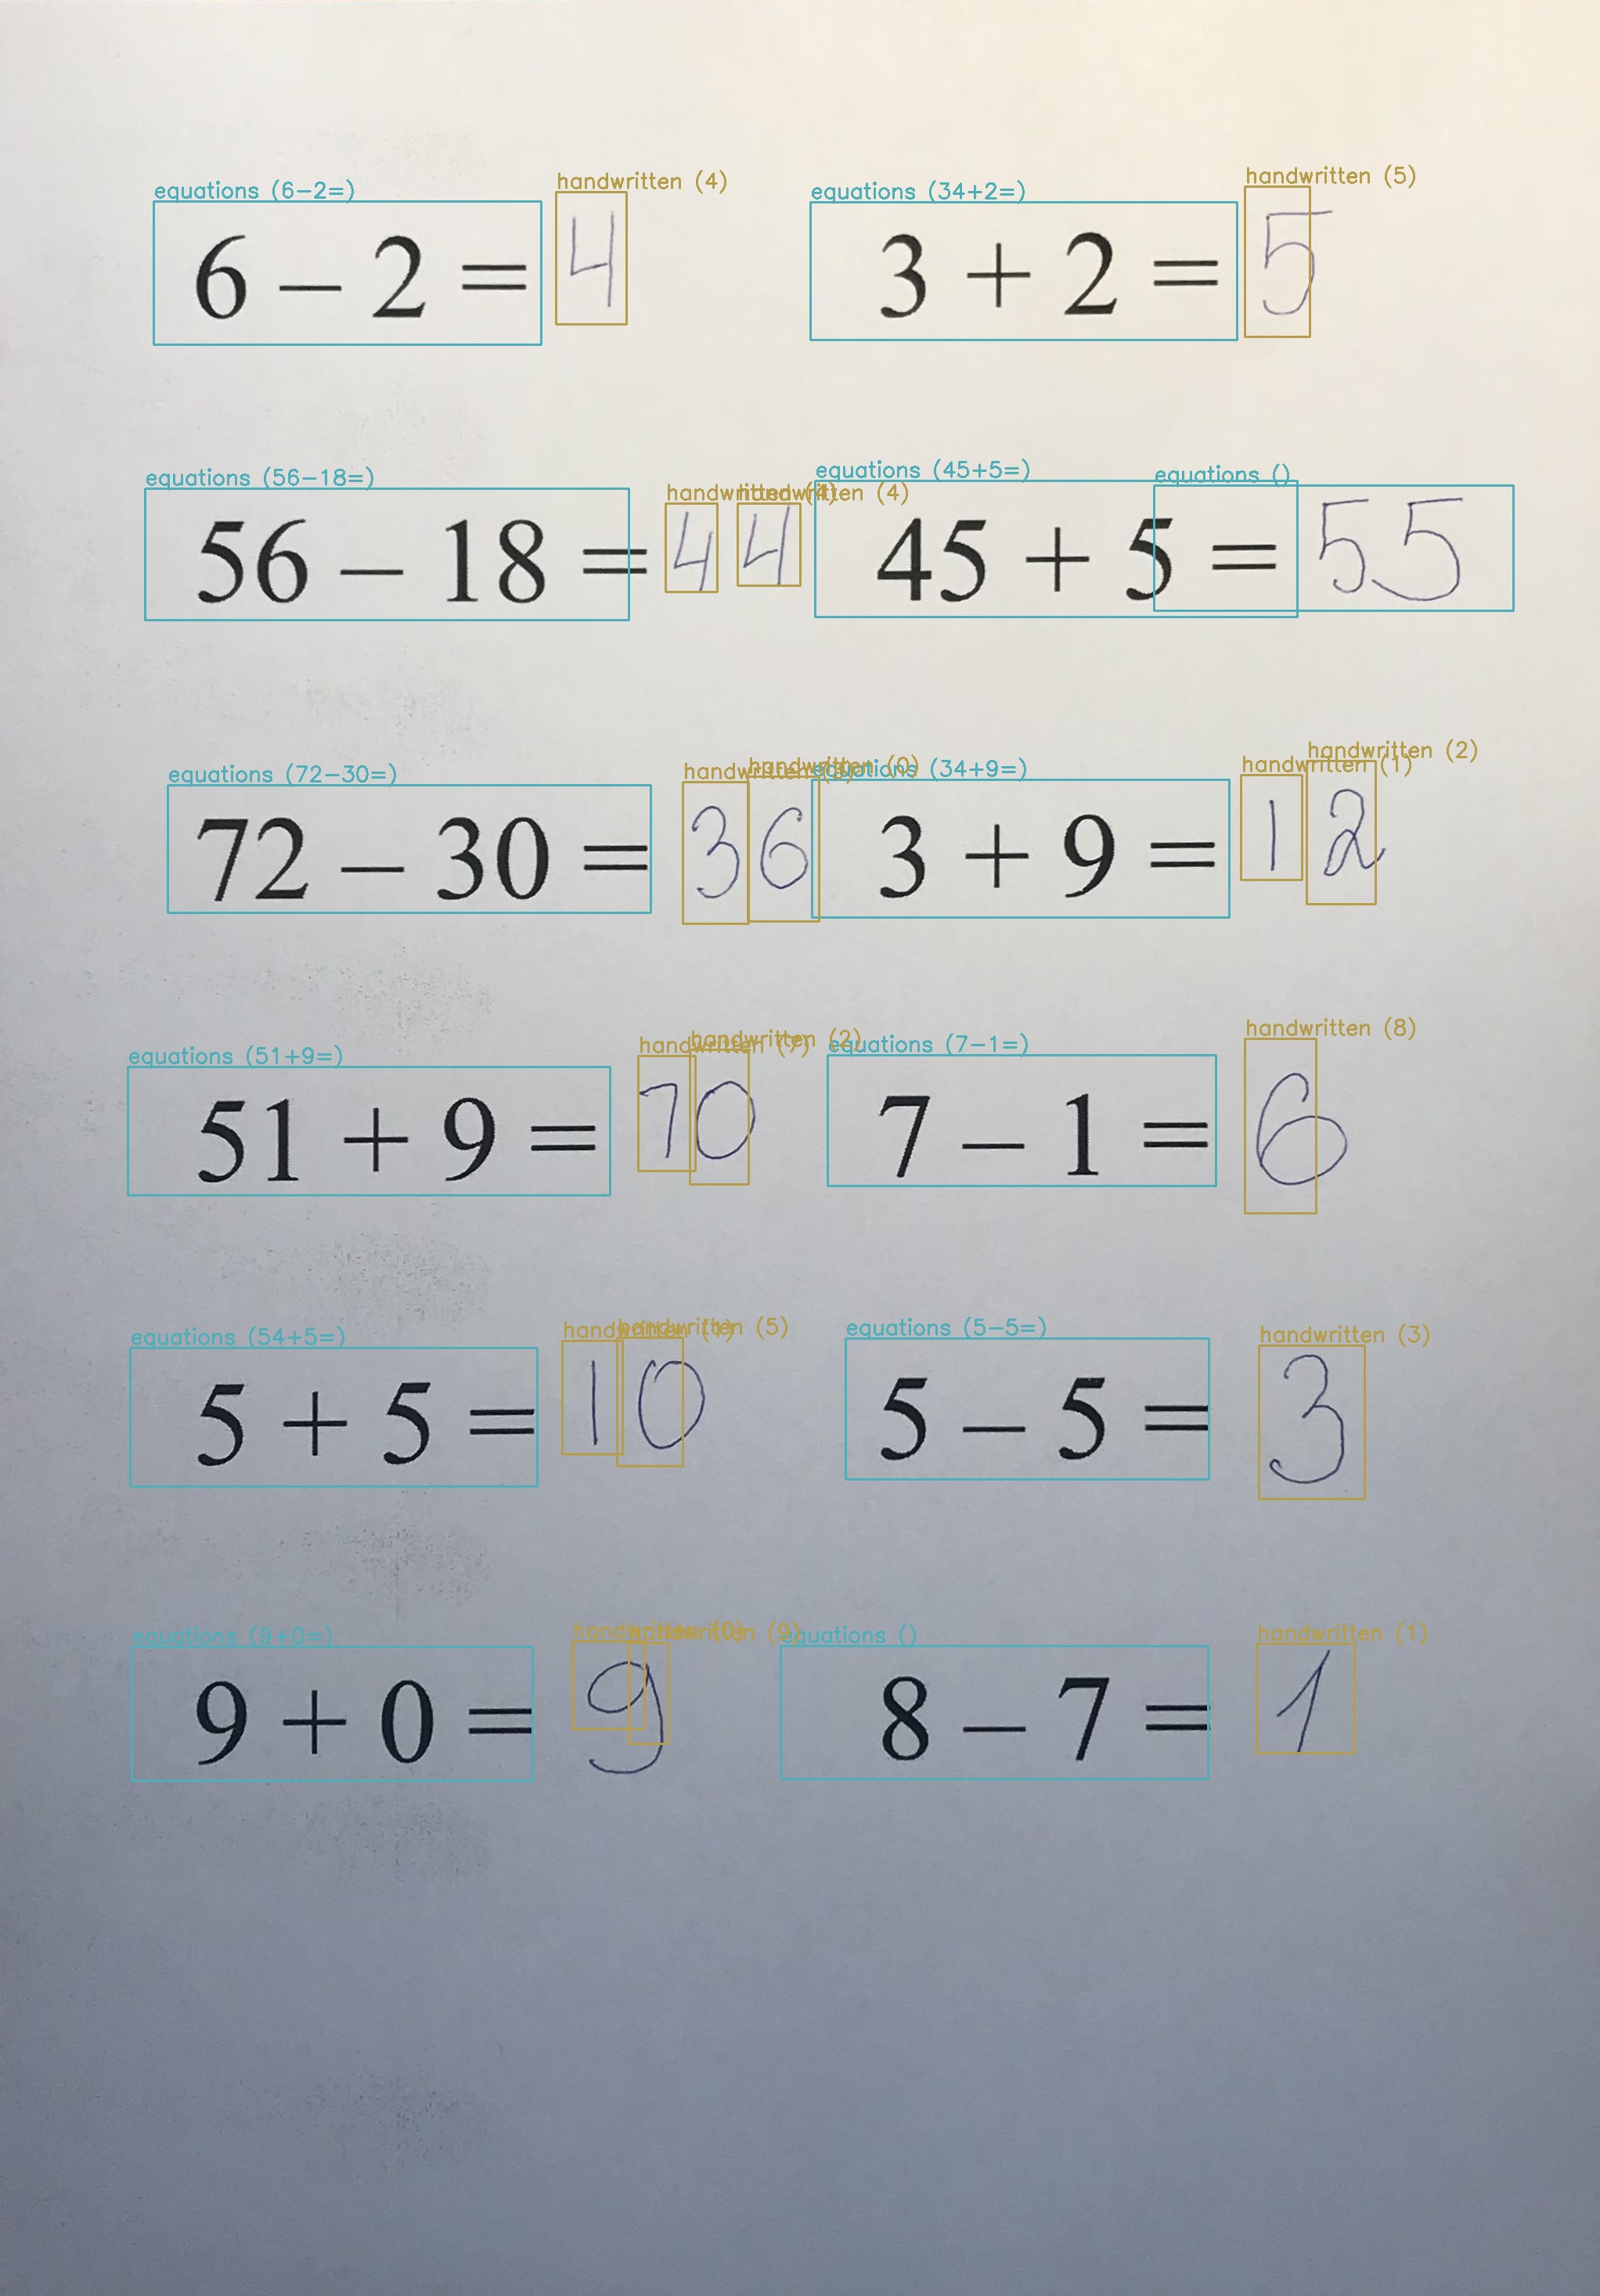 equations (6-2=) handwritten (4) equations (34+2=) handwritten (5)
6 – 2 = 4 3 + 2 = 5
equations (56-18=) handwritten (4) handwritten (4) equations (45+5=) equations ()
56 – 18 = 44 45 + 5 = 55
equations (72-30=) handwritten handwritten equations (34+9=) handwritten (1) handwritten (2)
72 – 30 = 36 3 + 9 = 12
equations (51+9=) handwritten (7) handwritten (2) equations (7-1=) handwritten (8)
51 + 9 = 70 7 – 1 = 6
equations (54+5=) handwritten (1) handwritten (5) equations (5-5=) handwritten (3)
5 + 5 = 10 5 – 5 = 3
equations (9+0=) handwritten (0) handwritten (9) equations () handwritten (1)
9 + 0 = 9 8 – 7 = 1